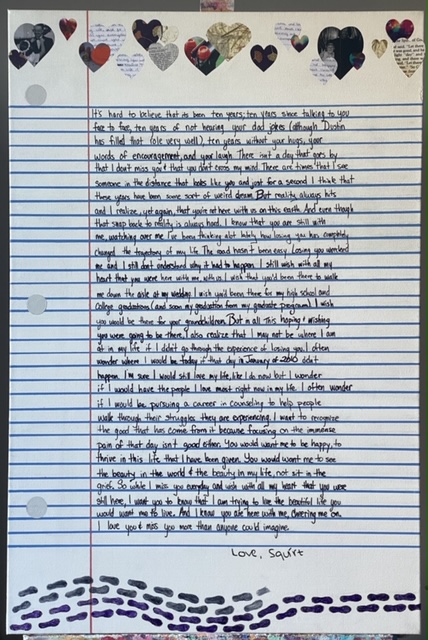 It's hard to believe that its been ten years; ten years since talking to you
face to face, ten years of not hearing your dad jokes (although Dustin
has filled that role very well), ten years without your hugs, your
words of encouragement, and your laugh. There isn't a day that goes by
that I don't miss you & that you don't cross my mind. There are times that I see
someone in the distance that looks like you and just for a second I think that
these years have been some sort of weird dream. But reality always hits
and I realize, yet again, that you're not here with us on this earth. And even though
that snap back to reality is always hard. I know that you are still with
me, watching over me. I've been thinking alot lately how losing you has completely
changed the trajectory of my life. The road hasn't been easy. Losing you wounded
me and I still don't understand why it had to happen. I still wish with all my
heart that you were here with me, with us. I wish that you'd been there to walk
me down the aisle at my wedding. I wish you'd been there for my high school and
college graduations (and soon my graduation from my graduate program). I wish
you would be there for your grandchildren. But in all this hoping & wishing
you were going to be there, I also realize that I may not be where I am
at in my life if I didn't go through the experience of losing you. I often
wonder where I would be today if that day in January of didn't
happen. I'm sure I would still love my life, like I do now but I wonder
if I would have the people I love most right now in my life. I often wonder
if I would be pursuing a career in counseling to help people
walk through their struggles they are experiencing. I want to recognize
the good that has come from it because focusing on the immense
pain of that day isn't good either. You would want me to be happy, to
thrive in this life that I have been given. You would want me to see
the beauty in the world & the beauty in my life, not sit in the
grief. So while I miss you everyday and wish with all my heart that you were
still here, I want you to know that I am trying to live the beautiful life you
would want me to live. And I know you are here with me, cheering me on.
I love you & miss you more than anyone could imagine.
Love, Squirt